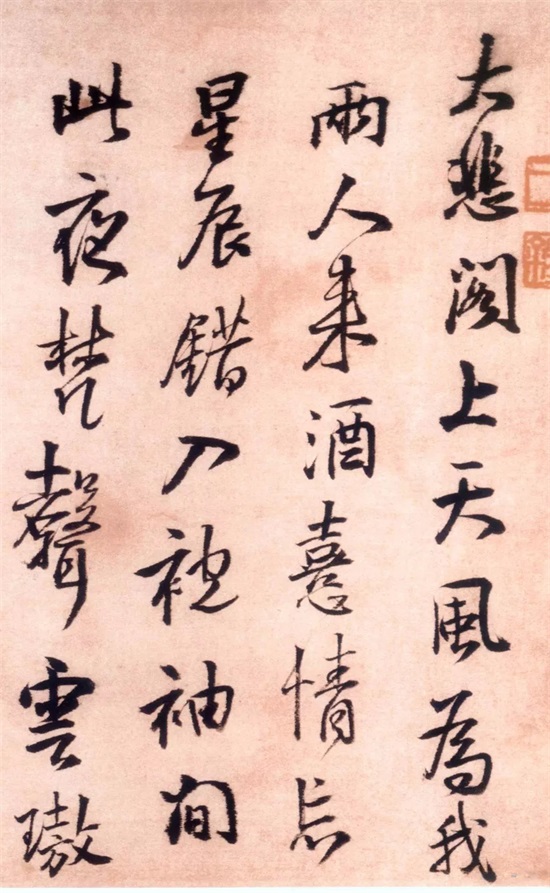 大悲閣上天風為我
兩人來酒意情忘
星辰錯入袍袖間
此夜梵聲雲璈